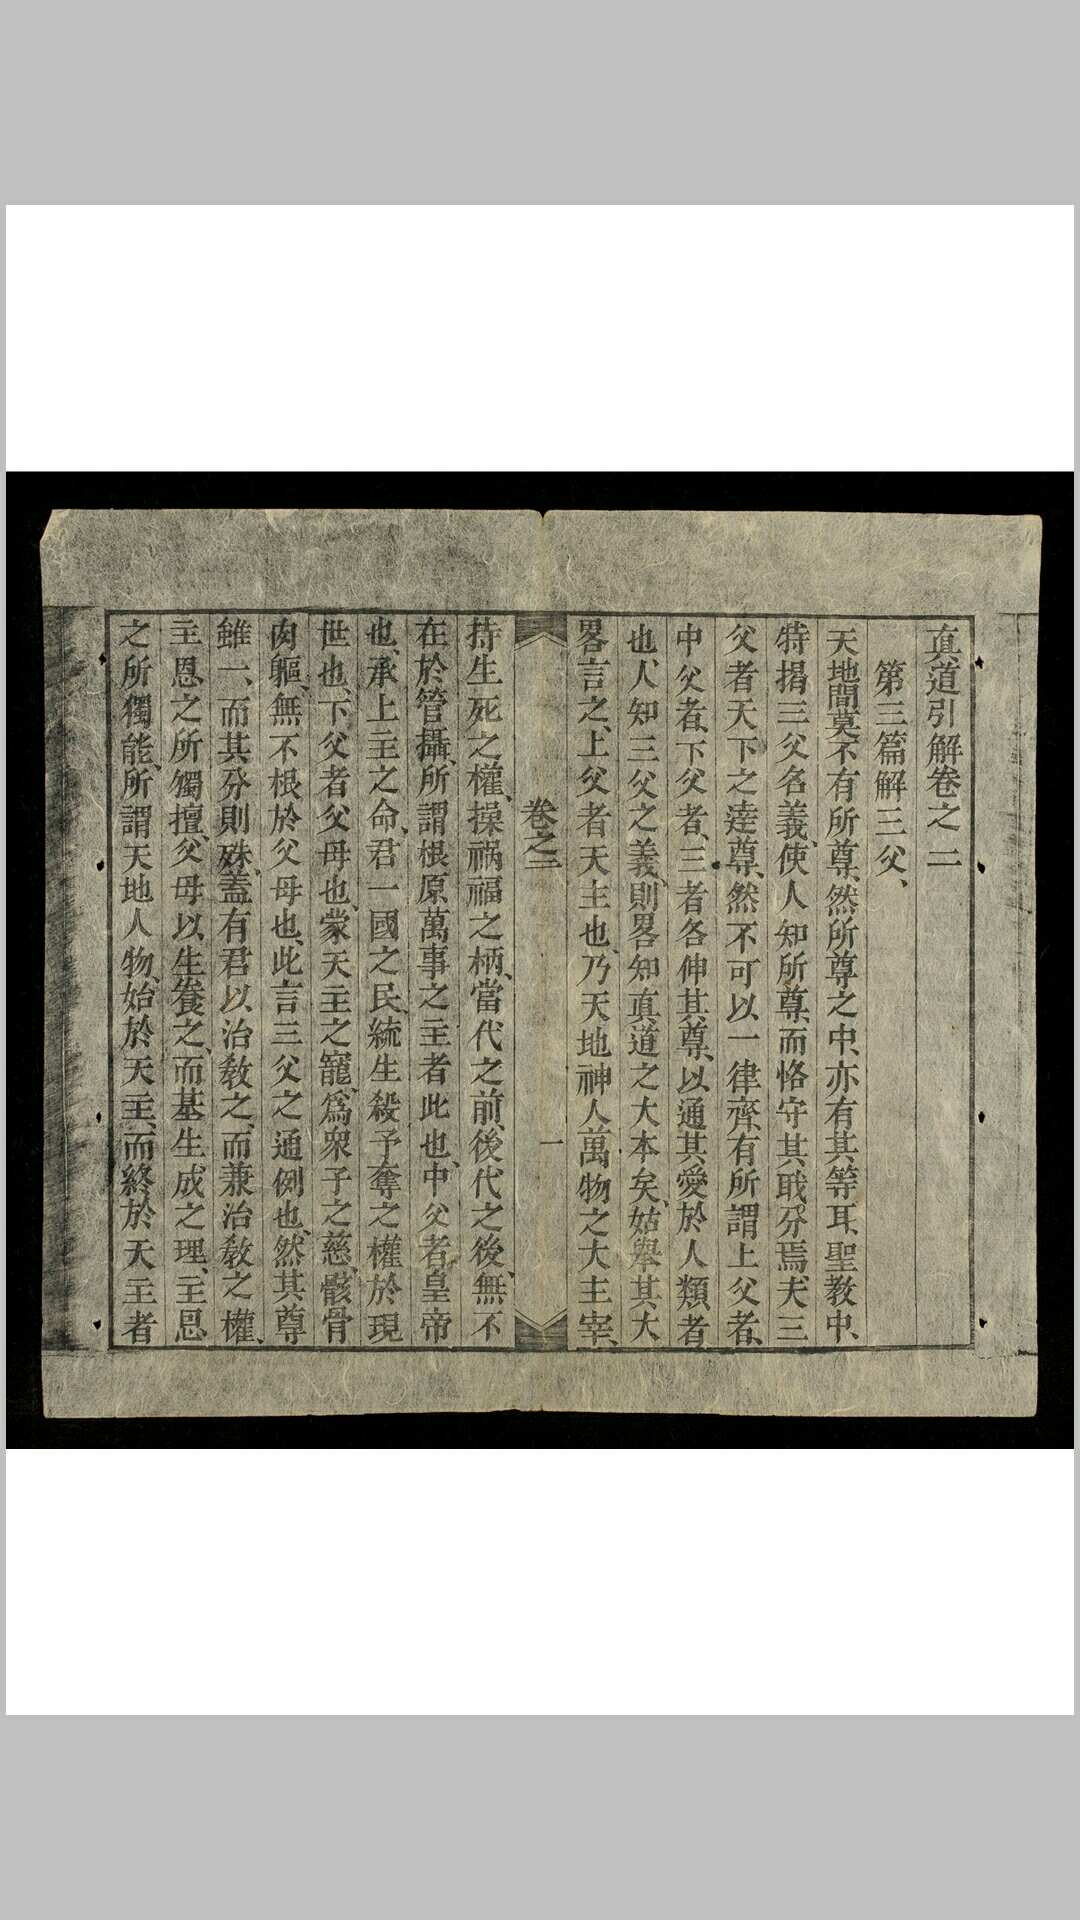 真道引解卷之二
第三篇解三父、
天地間莫不有所尊、然所尊之中、亦有其等耳、聖教中、
特揭三父名義、使人知所尊、而恪守其戢分焉、夫三
父者天下之達尊、然不可以一律齊、有所謂上父者、
中父者、下父者、三者各伸其尊、以通其愛於人類者
也、人知三父之義、則畧知真道之大本矣、姑舉其大
畧言之、上父者天主也、乃天地神人萬物之大主宰、
卷之二
一
持生死之權、操禍福之柄、當代之前、後代之後、無不
在於管攝、所謂根原萬事之主者此也、中父者皇帝
也、承上主之命、君一國之民、統生殺予奪之權於現
世也、下父者父母也、蒙天主之寵、為眾子之慈、骸骨
肉軀、無不根於父母也、此言三父之通例也、然其尊
雖一、而其分則殊、蓋有君以治教之、而兼治教之權、
主恩之所獨擅、父母以生養之、而基生成之理、主恩
之所獨能、所謂天地人物、始於天主、而終於天主者